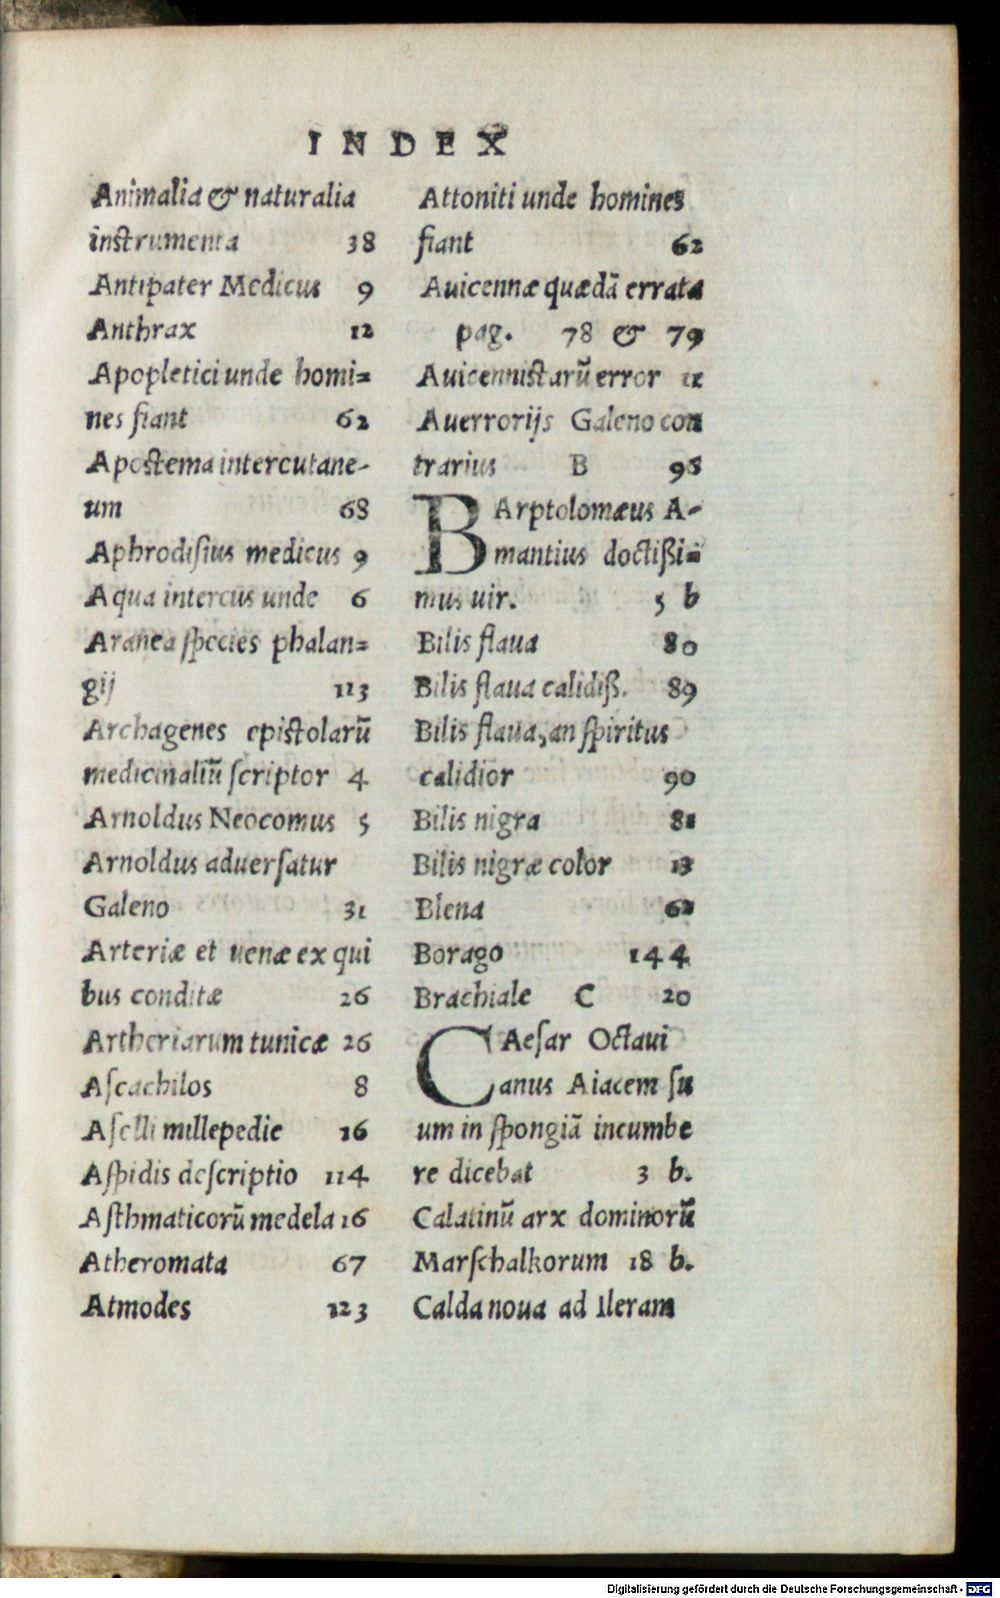 INDEX
Animalia & naturalia
instrumenta 38
Antipater Medicus 9
Anthrax 12
Apopletici unde homi=
nes fiant 62
Apostema intercutane-
um 68
Aphrodisius medicus 9
Aqua intercus unde 6
Aranea species phalan=
gij 113
Archagenes epistolarũ
medicinaliũ scriptor 4
Arnoldus Neocomus 5
Arnoldus aduersatur
Galeno 31
Arteriæ et uenæ ex qui
bus conditæ 26
Artheriarum tunicæ 26
Ascachilos 8
Aselli millepedie 16
Aspidis descriptio 114
Asthmaticorũ medela 16
Atheromata 67
Atmodes 123
Attoniti unde homines
fiant 62
Auicennæ quædã errata
pag. 78 & 79
Auicennistarũ error 11
Auerrorijs Galeno con
trarius B 98
BArptolomæus A-
mantius doctißi=
mus uir. 5 b
Bilis flaua 80
Bilis flaua calidiß. 89
Bilis flaua, an spiritus
calidior 90
Bilis nigra 81
Bilis nigræ color 13
Blena 62
Borago 144
Brachiale C 20
CAesar Octaui
anus Aiacem su
um in spongiã incumbe
re dicebat 3 b.
Calatinũ arx dominorũ
Marschalkorum 18 b.
Calda noua ad Ileram
Digitalisierung gefördert durch die Deutsche Forschungsgemeinschaft - DFG